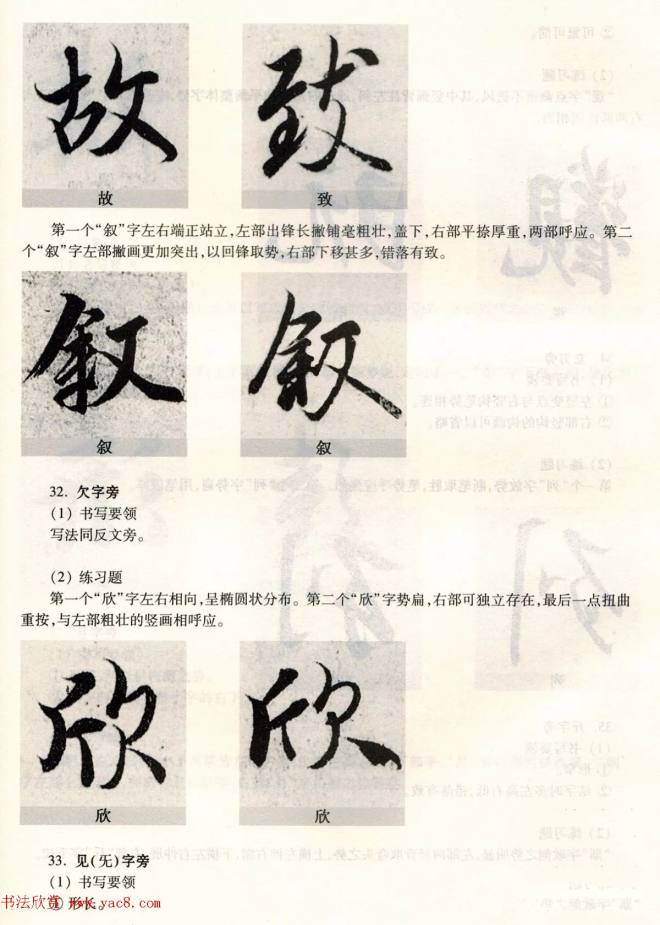 故 致
故 致
第一个“叙”字左右端正站立,左部出锋长撇铺毫粗壮,盖下,右部平捺厚重,两部呼应。第二
个“叙”字左部撇画更加突出,以回锋取势,右部下移甚多,错落有致。
叙 叙
叙 叙
32. 欠字旁
(1) 书写要领
写法同反文旁。
(2) 练习题
第一个“欣”字左右相向,呈椭圆状分布。第二个“欣”字势扁,右部可独立存在,最后一点扭曲
重按,与左部粗壮的竖画相呼应。
欣 欣
欣 欣
33. 见(旡)字旁
(1) 书写要领
① 形长。
书法欣赏 www.yac8.com